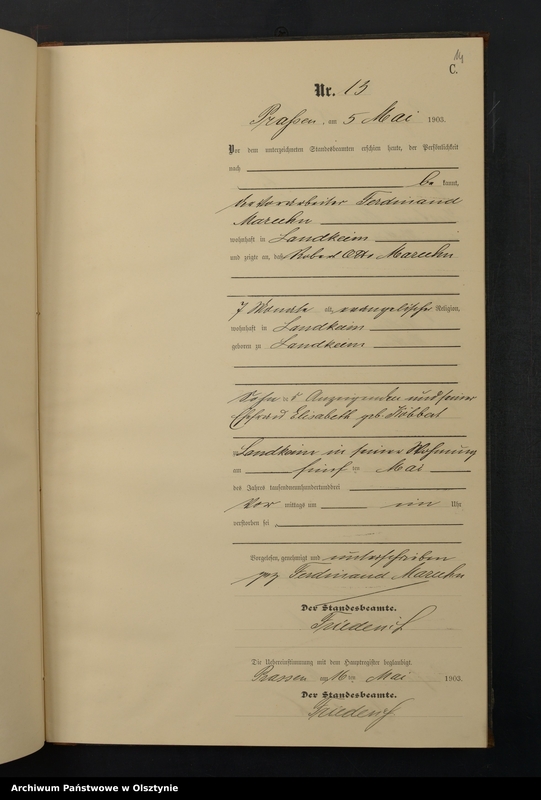 14
C.
Nr. 13
Praßen, am 5 Mai 1903.
Vor dem unterzeichneten Standesbeamten erschien heute, der Persönlichkeit
nach
be kannt,
Ferdinand
Marlehn
wohnhaft in Landkeim
und zeigte an, daß Robert Otto Marlehn
7 Monate alt, evangelischer Religion,
wohnhaft in Landkeim
geboren zu Landkeim
Sohn de s Anzeigenden und seiner
Ehefrau Elisabeth geb.
Landkeim in seiner Wohnung
am fünf ten Mai
des Jahres tausendneunhundertunddrei
Vor mittags um ein Uhr
verstorben sei
Vorgelesen, genehmigt und unterschrieben
gez Ferdinand Marlehn
Der Standesbeamte.
Die Uebereinstimmung mit dem Hauptregister beglaubigt.
Prassen, am Mai 1903.
Der Standesbeamte.
Archiwum Państwowe w Olsztynie